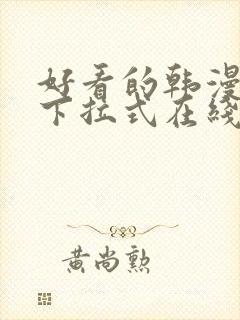 好看的韩漫
下拉式在线
黄尚勲